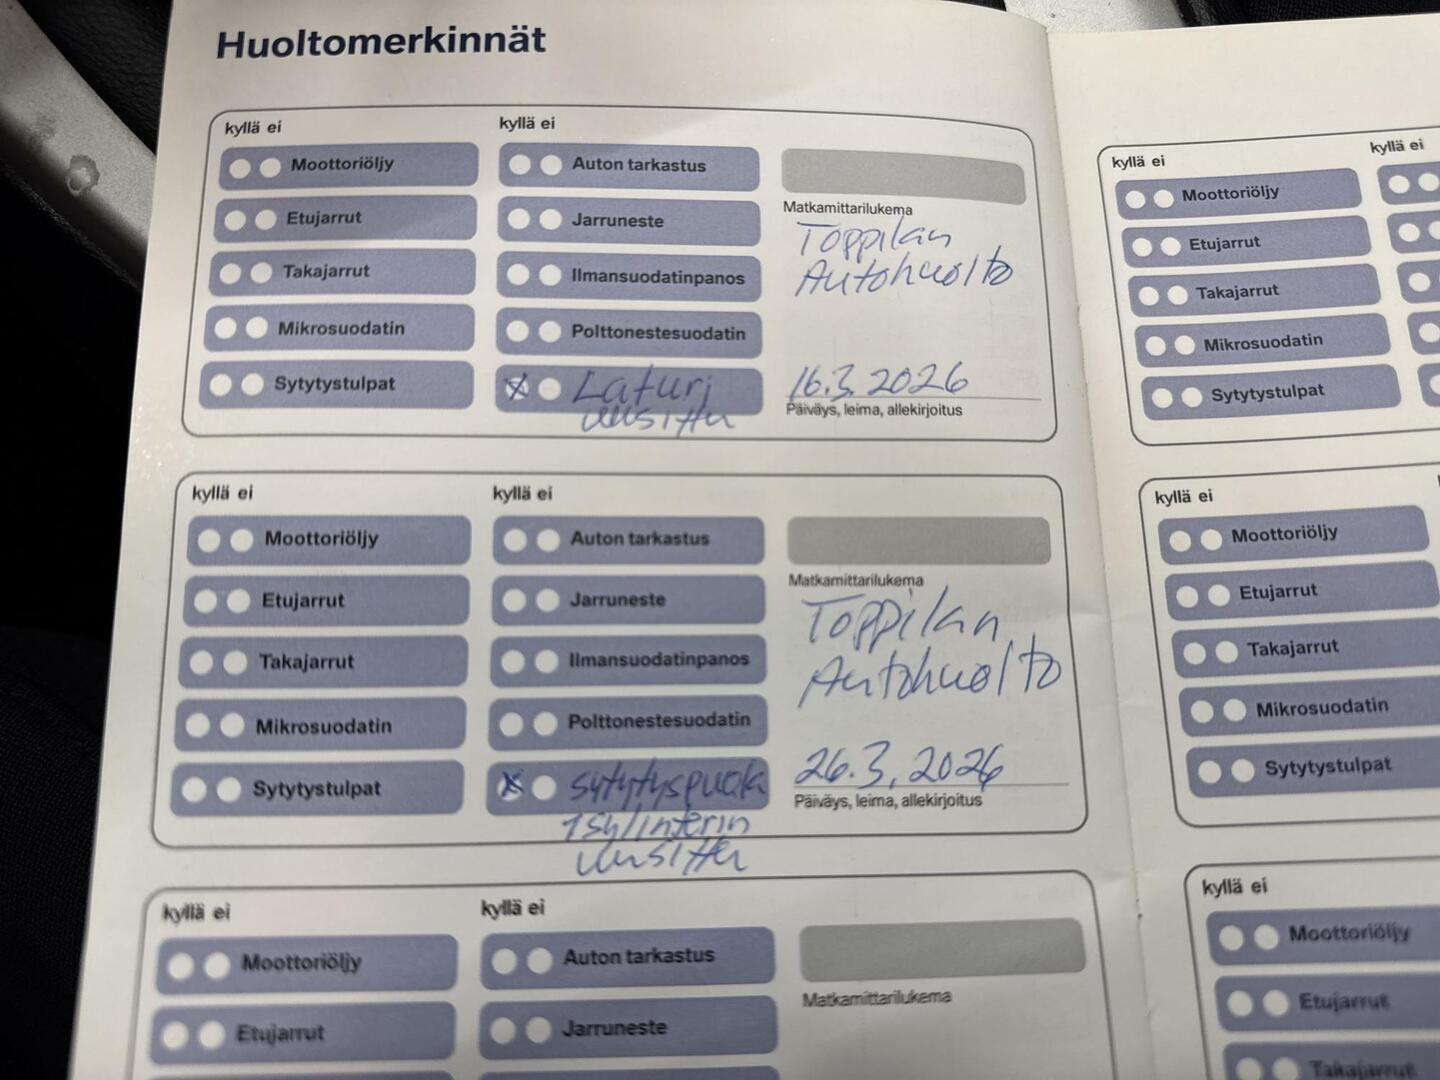 Huoltomerkinnät
kyllä ei
kyllä ei
Moottoriöljy
Auton tarkastus
Etujarrut
Jarruneste
Takajarrut
Ilmansuodatinpanos
Mikrosuodatin
Polttonestesuodatin
Sytytystulpat
Laturi
uusittu
Matkamittarilukema
Toppilan
Autohuolto
16.3.2026
Päiväys, leima, allekirjoitus
kyllä ei
kyllä ei
Moottoriöljy
Auton tarkastus
Etujarrut
Jarruneste
Takajarrut
Ilmansuodatinpanos
Mikrosuodatin
Polttonestesuodatin
Sytytystulpat
sytytyspuola
1sylinterin
uusittu
Matkamittarilukema
Toppilan
Autohuolto
26.3.2026
Päiväys, leima, allekirjoitus
kyllä ei
kyllä ei
Moottoriöljy
Auton tarkastus
Etujarrut
Jarruneste
Matkamittarilukema
kyllä ei
kyllä ei
Moottoriöljy
Etujarrut
Takajarrut
Mikrosuodatin
Sytytystulpat
kyllä ei
Moottoriöljy
Etujarrut
Takajarrut
Mikrosuodatin
Sytytystulpat
kyllä ei
Moottoriöljy
Etujarrut
Takajarrut